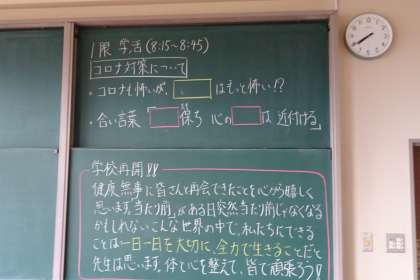 1限 学活(8:15~8:45)
コロナ対策について
・コロナも怖いが、 はもっと怖い!?
・合い言葉「 保ち 心の は 近付ける」
学校再開!!
健康無事に皆さんと再会できたことを心から嬉しく
思います。当たり前が、ある日突然当たり前じゃなくなる
かもしれないこんな世界の中で、私たちにできる
ことは一日一日を大切に、全力で生きることだと
先生は思います。体と心を整えて、皆で頑張ろう!!